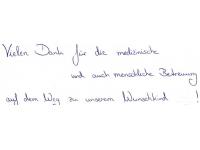 Vielen Dank für die medizinische
und auch menschliche Betreuung
auf dem Weg zu unserem Wunschkind !